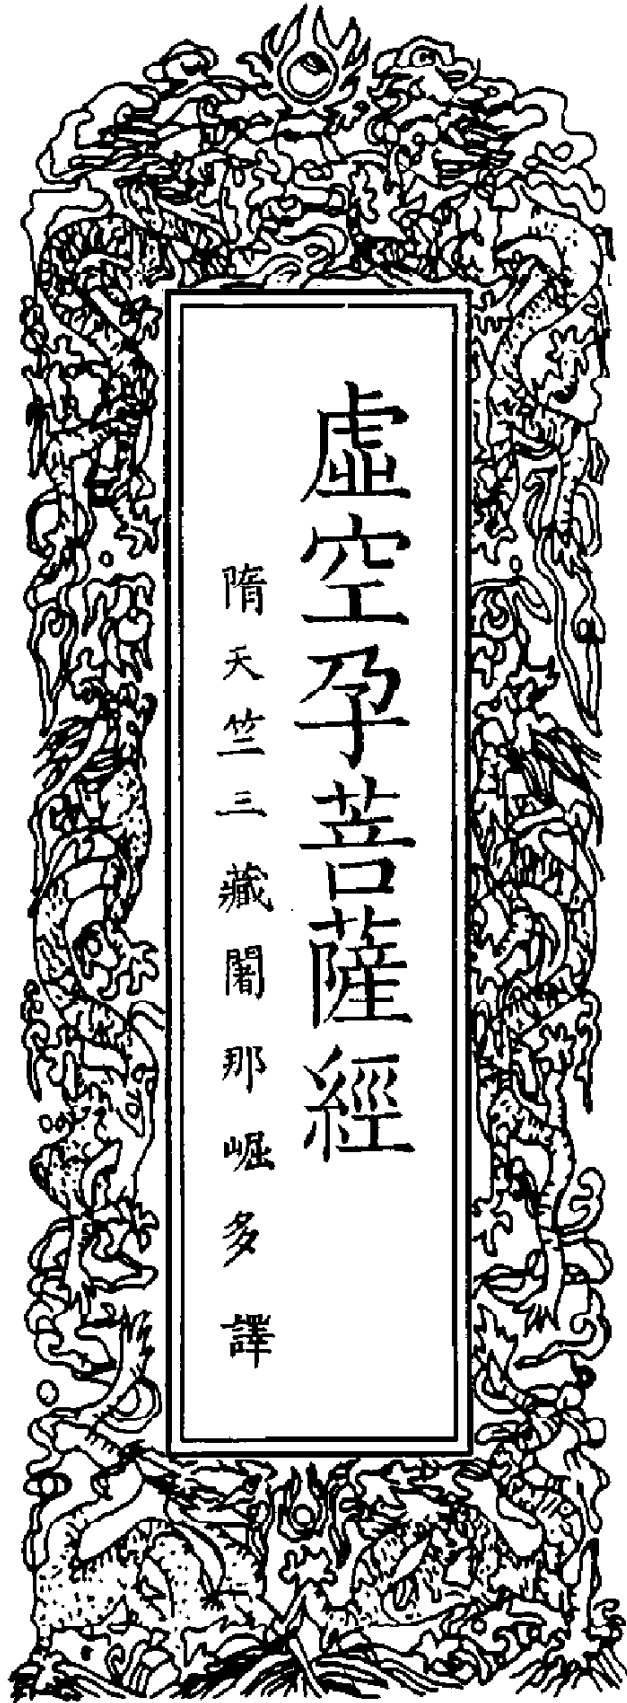 虛空孕菩薩經
隋天竺三藏闍那崛多譯